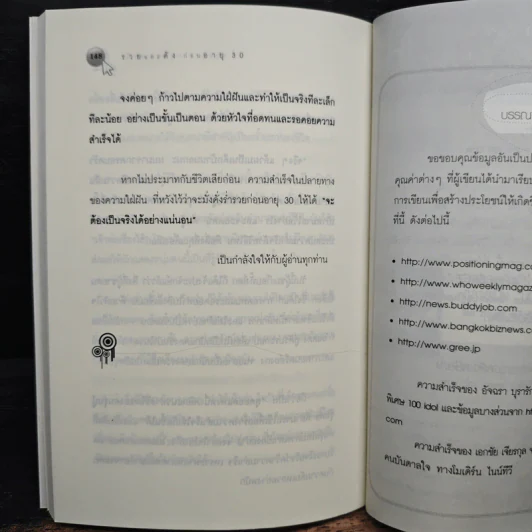 148
รวยและดัง ก่อนอายุ 30
จงค่อยๆ ก้าวไปตามความใฝ่ฝันและทำให้เป็นจริงทีละเล็ก
ทีละน้อย อย่างเป็นขั้นเป็นตอน ด้วยหัวใจที่อดทนและรอคอยความ
สำเร็จได้
หากไม่ประมาทกับชีวิตเสียก่อน ความสำเร็จในปลายทาง
ของความใฝ่ฝัน ที่หวังไว้ว่าจะมั่งคั่งร่ำรวยก่อนอายุ 30 ให้ได้ "จะ
ต้องเป็นจริงได้อย่างแน่นอน"
เป็นกำลังใจให้กับผู้อ่านทุกท่าน
บรรณ
ขอขอบคุณข้อมูลอันเป็นป
คุณค่าต่างๆ ที่ผู้เขียนได้นำมาเรีย
การเขียนเพื่อสร้างประโยชน์ให้เกิด
ที่นี้ ดังต่อไปนี้
• http://www.positioningmag.c
• http://www.whoweeklymagaz
• http://news.buddyjob.com
• http://www.bangkokbiznews.c
• http://www.gree.jp
ความสำเร็จของ อัจฉรา บุรารั
พิเศษ 100 idol และข้อมูลบางส่วนจาก ht
com
ความสำเร็จของ เอกชัย เจียรกุล
คนบันดาลใจ ทางโมเดิร์น ไนน์ทีวี